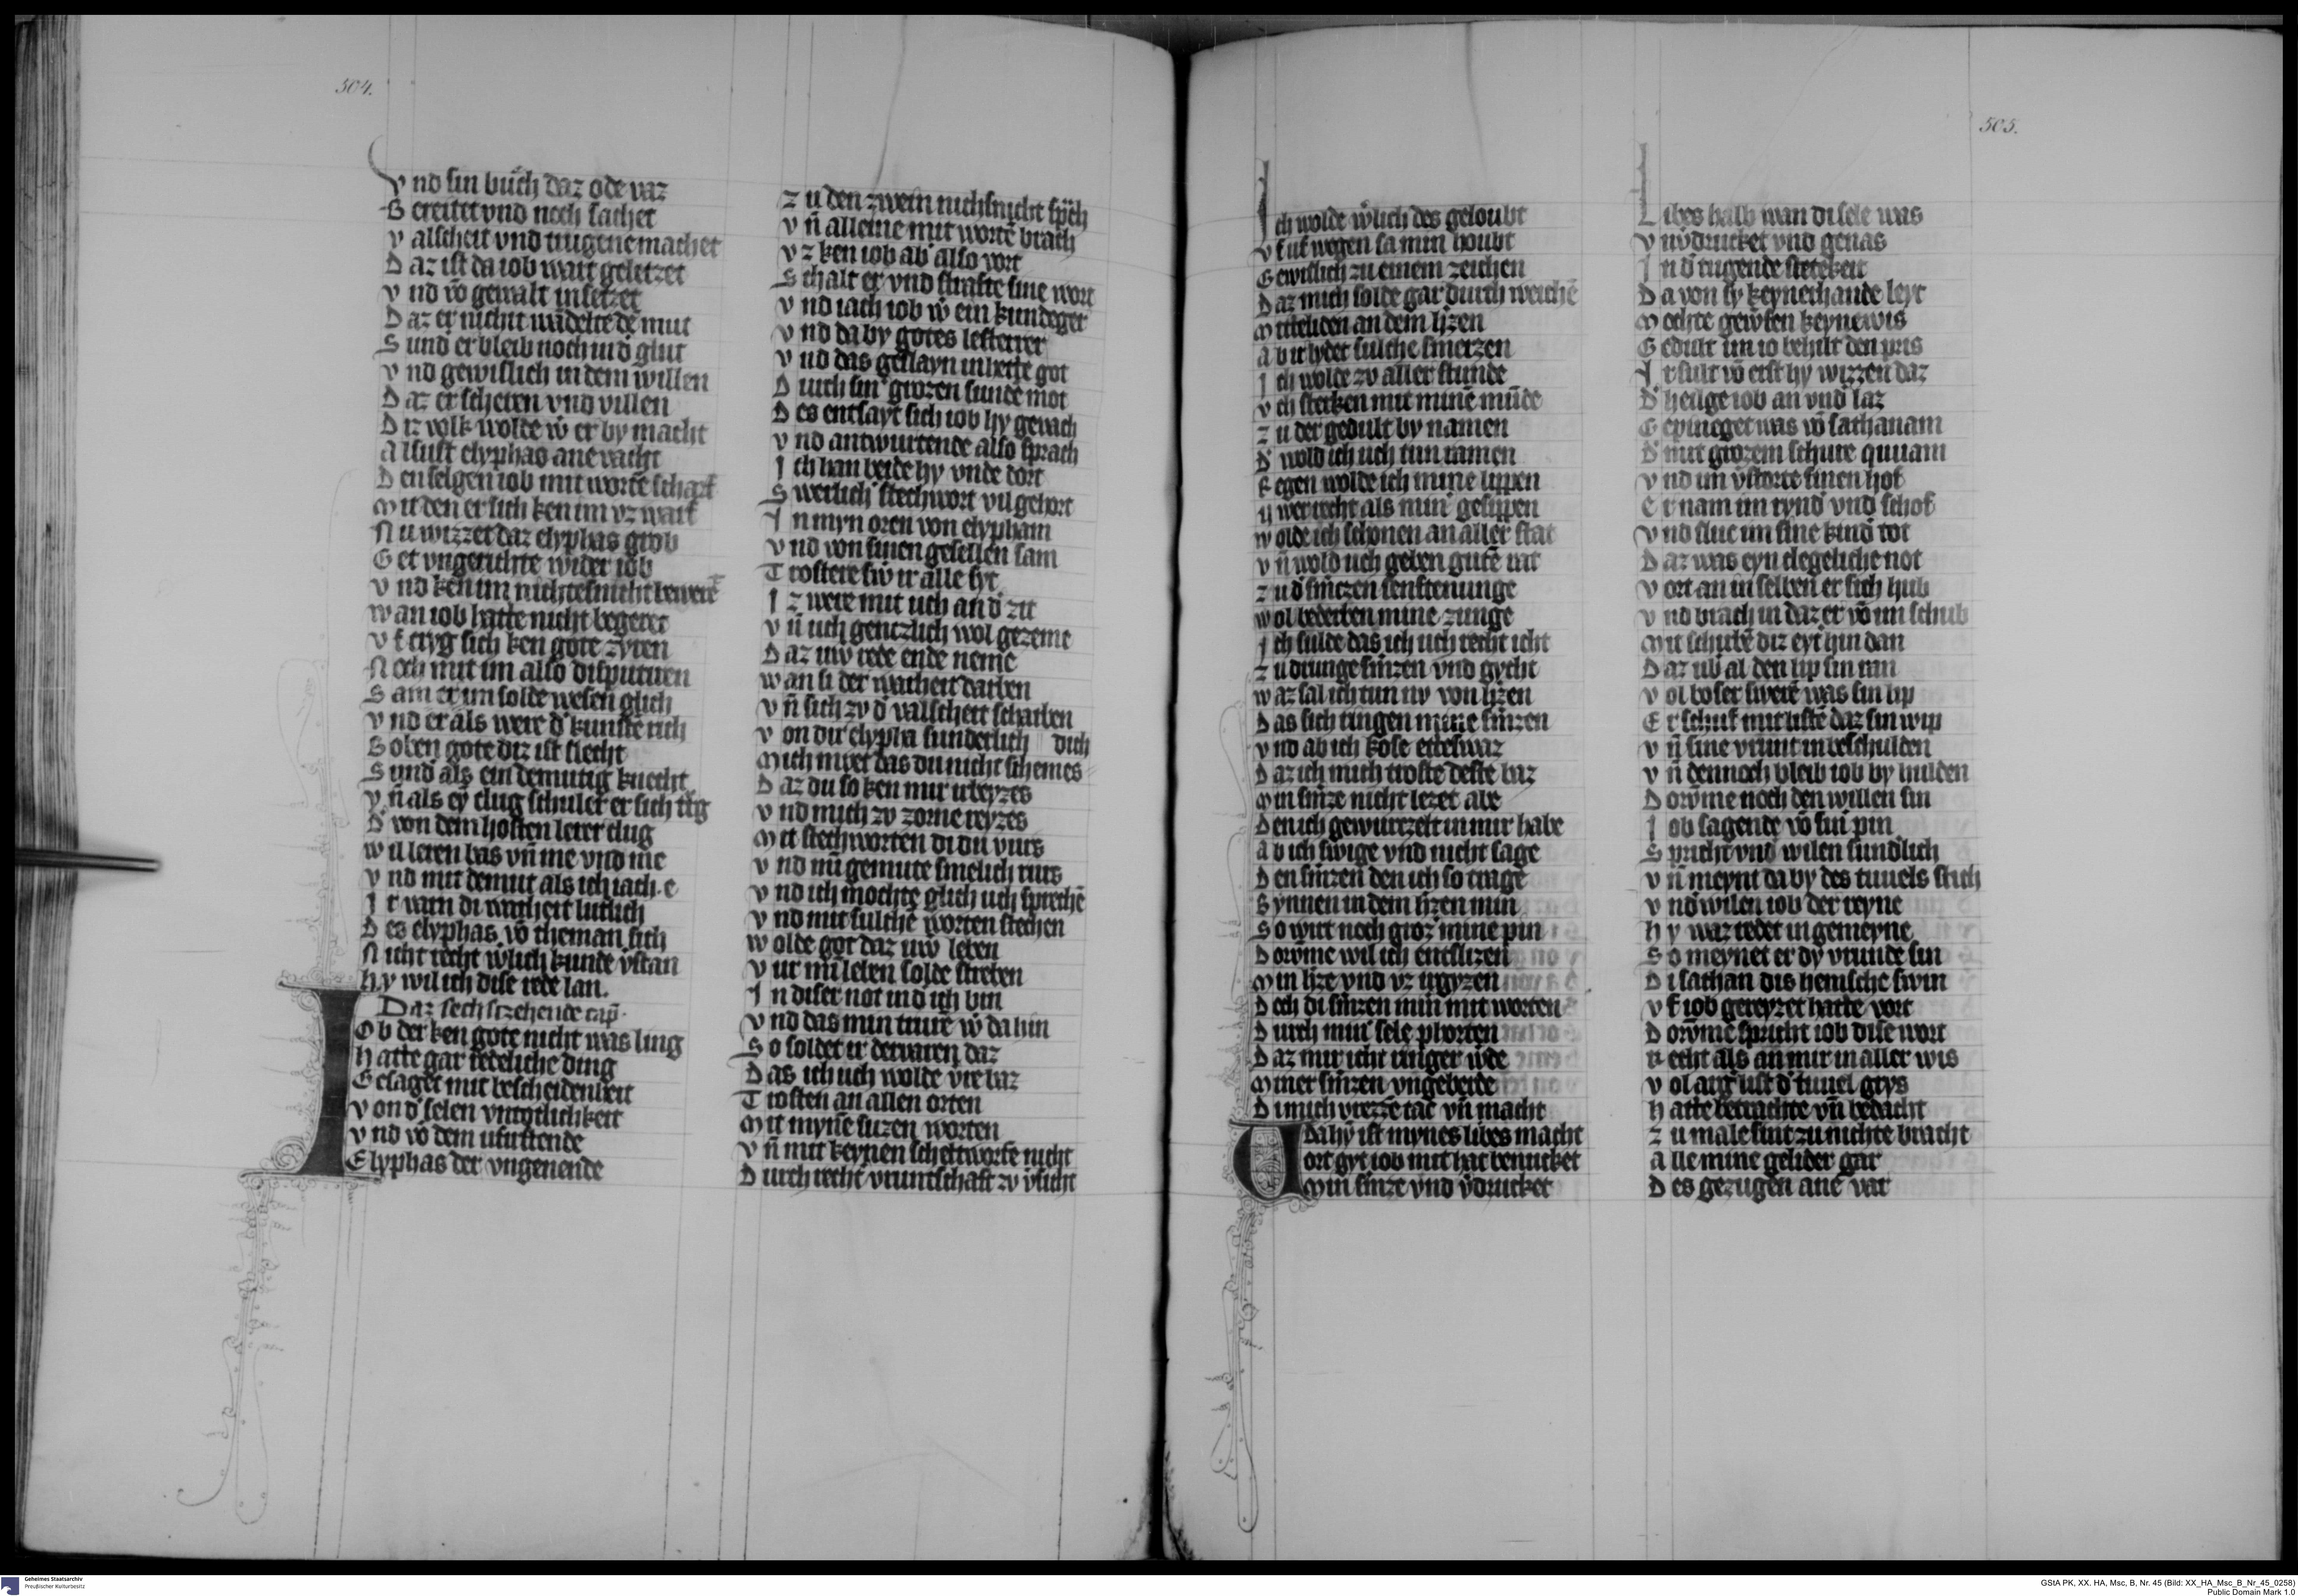 504.
Vnd sin buͤch daz ode vaz
Bereitet vnd noch sachet
Valscheit vnd trugene machet
Daz ist da iob wart geletzet
Vnd vō gewalt insetzet
Daz er nicht wādelte dē mut
Sund er bleib noch in d' glut
Vnd gewislich in dem willen
Daz er scheten vnd villen
Diz volk wolde w er by macht
Alsust elyphas ane vacht
Den selgen iob mit wortē scharf
Mit den er sich ken im vz warf
Nu wizzet daz elyphas grob
Get vngerichte wider iob
Vnd ken im nichtesnicht bewerē
Wan iob hatte nicht begeret
Vf cryg sich ken gote zyren
Noch mit im also disputuren
Sam er im solde wesen glich
Vnd er als were d' kunste rich
Boben gote diz ist slecht
Sund als ein demutig knecht
Vn̄ als ey clug schuler er sich trg
D' von dem hosten lerer clug
Wil leren bas vn̄ me vnd me
Vnd mit demut als ich iach e
Ir varn di warheit lutlich
Des elyphas vō theman sich
Nicht recht w'lich kunde v'stan
Hy wil ich dise rede lan.
Daz sechszehende cap̄.
Iob der ken gote nicht was ling
Hatte gar redeliche ding
Gesaget mit bescheidenheit
Von d' selen vntotlichkeit
Vnd vō dem ufirstende
Elyphas der vngenende
Zu den zwein nichsnicht sp̄ch
Vn̄ alleine mit wortē brach
Vz ken iob ab' also vort
Schalt er vnd strafte sine wort
Vnd iach iob w' ein kundeger
Vnd da by gotes lesterer
Vnd das geslayn in hette got
Durch sin' grozen sunde mot
Des entsayt sich iob hy gerach
Vnd antwurtende also sprach
Ich han beide hy vnde dort
Swerlich' stechwort vil gehort
In myn oren von elypham
Vnd von sinen gesellen sam
Trostere siw ir alle syt
Iz were mit uch an d' zit
Vn̄ uch gentzlich wol gezeme
Daz uw' rede ende neme
Wan si der warheit darben
Vn̄ sich zv d' valscheit scharben
Von dir elypha sunderlich dich
Mich mvet das du nicht schemes
Daz du so ken mir ubeyzes
Vnd mich zv zorne reyzes
Mit stechworten di du vurs
Vnd mī gemute smelich rurs
Vnd ich mochte glich uch sprechē
Vnd mit sulchē worten stechen
Wolde got daz uw' leben
Vur mī leben solde streben
In diser not ind ich bin
Vnd das min trurē w' da hin
So soldet ir dervaren daz
Das ich uch wolde vic baz
Trosten an allen orten
Mit mynē suzen worten
Vn̄ mit keynen scheltworfe nicht
Durch recht vruntschaft zv v'sicht
505.
Ich wolde w'lich des geloubt
Vf uf wegen sa min houbt
Gewislich zu einem zeichen
Daz mich solde gar durch weichē
Mitteliden an dem h'zen
Ab ir lydet sulche smerzen
Ich wolde zv aller stunde
Vch sterken mit minē mūde
Zu der gedult by namen
D' wold ich uch tun ramen
Kegen wolde ich mine lippen
Ir wer recht als min' gesippen
Wolde ich schonen an aller stat
Vn̄ wold uch geben gutē rat
Zu d' smerzen senftenunge
Wol bederben mine zunge
Ich sulde das ich uch recht icht
Zu drunge smerzen vnd gycht
Waz sal ich tun nv von h'zen
Das sich ringen mine smerzen
Vnd ab ich kose etteswaz
Daz ich mich troste deste baz
Min smerze nicht lezet abe
Den ich gewurzelt in mir habe
Ab ich swige vnd nicht sage
Den smerzen den ich so trage
Bynnen in dem h'zen min
So wirt noch groz' mine pin
Dorv̄me wil ich entslizen
Min h'ze vnd vz irgyzen
Doch di smerzen min mit worten
Durch min' sele phorten
Daz mir icht ringer w'de
Miner smerzen vngeberde
Di mich vrezze tac vn̄ nacht
Da hy ist mynes libes macht
Dort gyt iob mit hat benucket
Min smerze vnd v'drucket
Libes halb man disele was
Vnv'drucket vnd genas
In d' tugende stetekeit
Da von sy keynerhande leyt
Mochte gew'fen keynewis
Gedult im io behilt den pris
Ir sult vō erst hy wizzen daz
D' heilge iob an vnd' laz
Gepineget was vō sathanam
D' mit grozem schure quam
Vnd im v'storte sinen hof
Er nam im rynd' vnd schof
Vnd sluc im sine kind' tot
Daz was eyn clegeliche not
Vort an in selben er sich hub
Vnd brach in daz er vō im schub
Mit schurbē diz eyt'hin dan
Daz ub' al den lip sin ran
Vol boser swerē was sin lip
Er schuf mit listē daz sin wip
Vn̄ sine vrunt in beschulden
Vn̄ dennoch bleib iob by hulden
Dorv̄me noch den willen sin
Iob sagende vō sin' pin
Spricht vnd' wilen sundlich
Vn̄ meynt da by des tuuels stich
Vnd' wilen iob der reyne
Hy waz redet in gemeyne
So meynet er dy vrunde sin
Di sathan dis hemische swin
Vf iob gereyzet hatte vort
Dorv̄me spricht iob dise wort
Recht als an mir in aller wis
Vol arg' list d' tuuel grys
Hatte betrachte vn̄ bedacht
Zu male sint zu nichte bracht
Alle mine gelider gar
Des gezugen ane var
Geheimes Staatsarchiv
Preußischer Kulturbesitz
GStA PK, XX. HA, Msc, B, Nr. 45 (Bild: XX_HA_Msc_B_Nr_45_0258)
Public Domain Mark 1.0